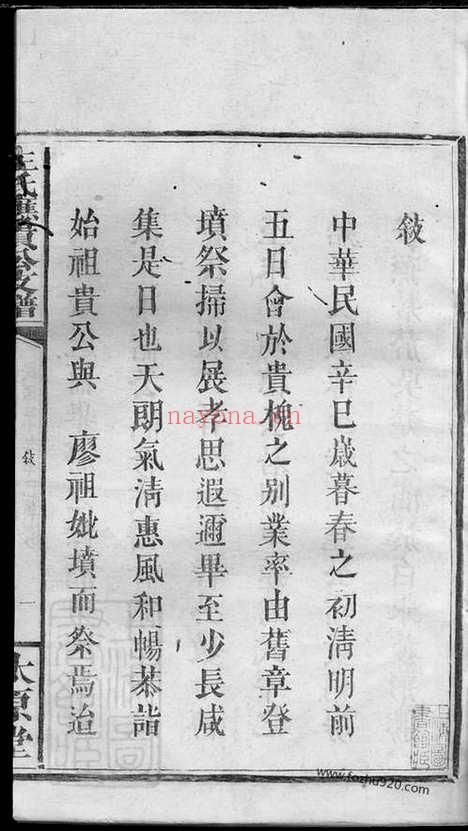 敍
中華民國辛巳歲暮春之初清明前
五日會於貴槐之别業率由舊章登
墳祭掃以展孝思遐邇畢至少長咸
集是日也天朗氣清惠風和暢恭詣
始祖貴公與 廖祖妣墳而祭焉迨
敍
一
太原堂
nayona.cn
www.fozhu920.com